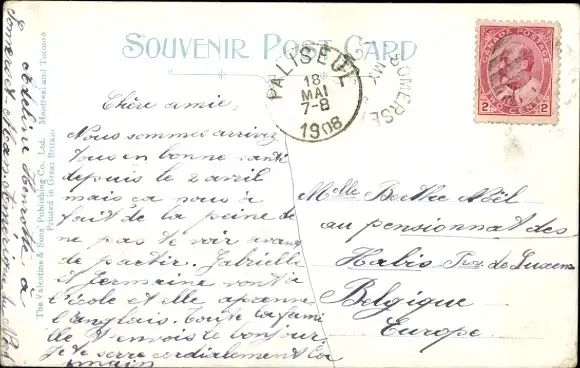 SOUVENIR POST CARD
CANADA POSTAGE
2 CENTS 2
PALISEUL
18
MAI
7-8
1908
SOMERSE
MY
Chère amie,
Nous sommes arrivez
tous en bonne santé
depuis le 2 avril
mais ca nous à
fait de la peine de
ne pas te voir avant
de partir. Gabrielle
et Germaine vont à
l'école et elle aprenne
l'anglais. toute la fami
lle t'envois le bonjour
Je te serre cordialement la
main
Melle Berthe Noël
au pensionnat des
Habis Prov. de Luxem
Belgique
Europe
The Valentine & Sons' Publishing Co. Ltd. Montreal and Toronto
Printed in Great Britain
Henriette à
Somerset